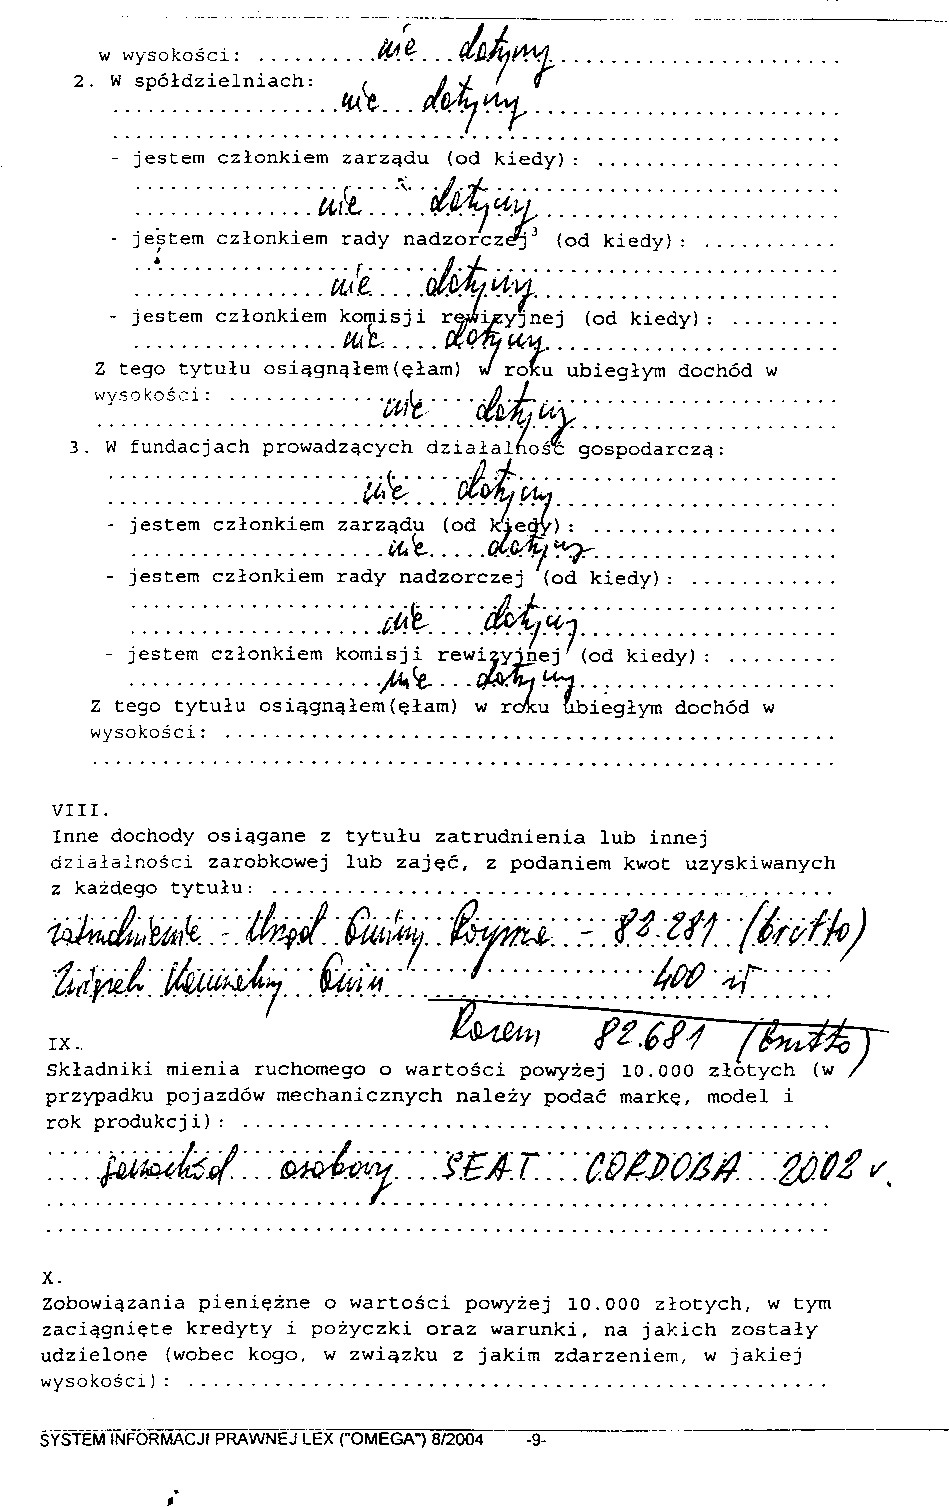 w wysokości: ..........nie...dotyczy........................
2. W spółdzielniach:
...................nie...dotyczy..........................
..............................................................
- jestem członkiem zarządu (od kiedy): .....................
............................................................
...............nie.....dotyczy..........................
- jestem członkiem rady nadzorczej³ (od kiedy): ...........
............................................................
................nie....dotyczy..........................
- jestem członkiem komisji rewizyjnej (od kiedy): .........
.................nie.....dotyczy.........................
Z tego tytułu osiągnąłem(ęłam) w roku ubiegłym dochód w
wysokości: .............nie....dotyczy......................
..............................................................
3. W fundacjach prowadzących działalność gospodarczą:
..............................................................
......................nie....dotyczy........................
- jestem członkiem zarządu (od kiedy): .....................
.....................nie.....dotyczy.....................
- jestem członkiem rady nadzorczej (od kiedy): ............
............................................................
.....................nie....dotyczy......................
- jestem członkiem komisji rewizyjnej (od kiedy): .........
.....................nie...dotyczy......................
Z tego tytułu osiągnąłem(ęłam) w roku ubiegłym dochód w
wysokości: ...................................................
..............................................................
VIII.
Inne dochody osiągane z tytułu zatrudnienia lub innej
działalności zarobkowej lub zajęć, z podaniem kwot uzyskiwanych
z każdego tytułu: ...............................................
zatrudnienie - Urząd Gminy - 82.281 (brutto)
Związek Gmin 400 zł
Razem 82.681 (brutto)
IX.
Składniki mienia ruchomego o wartości powyżej 10.000 złotych (w
przypadku pojazdów mechanicznych należy podać markę, model i
rok produkcji): .................................................
....samochód....osobowy....SEAT....CORDOBA...2002 r.
..................................................................
..................................................................
X.
Zobowiązania pieniężne o wartości powyżej 10.000 złotych, w tym
zaciągnięte kredyty i pożyczki oraz warunki, na jakich zostały
udzielone (wobec kogo, w związku z jakim zdarzeniem, w jakiej
wysokości): .....................................................
SYSTEM INFORMACJI PRAWNEJ LEX ("OMEGA") 8/2004 -9-